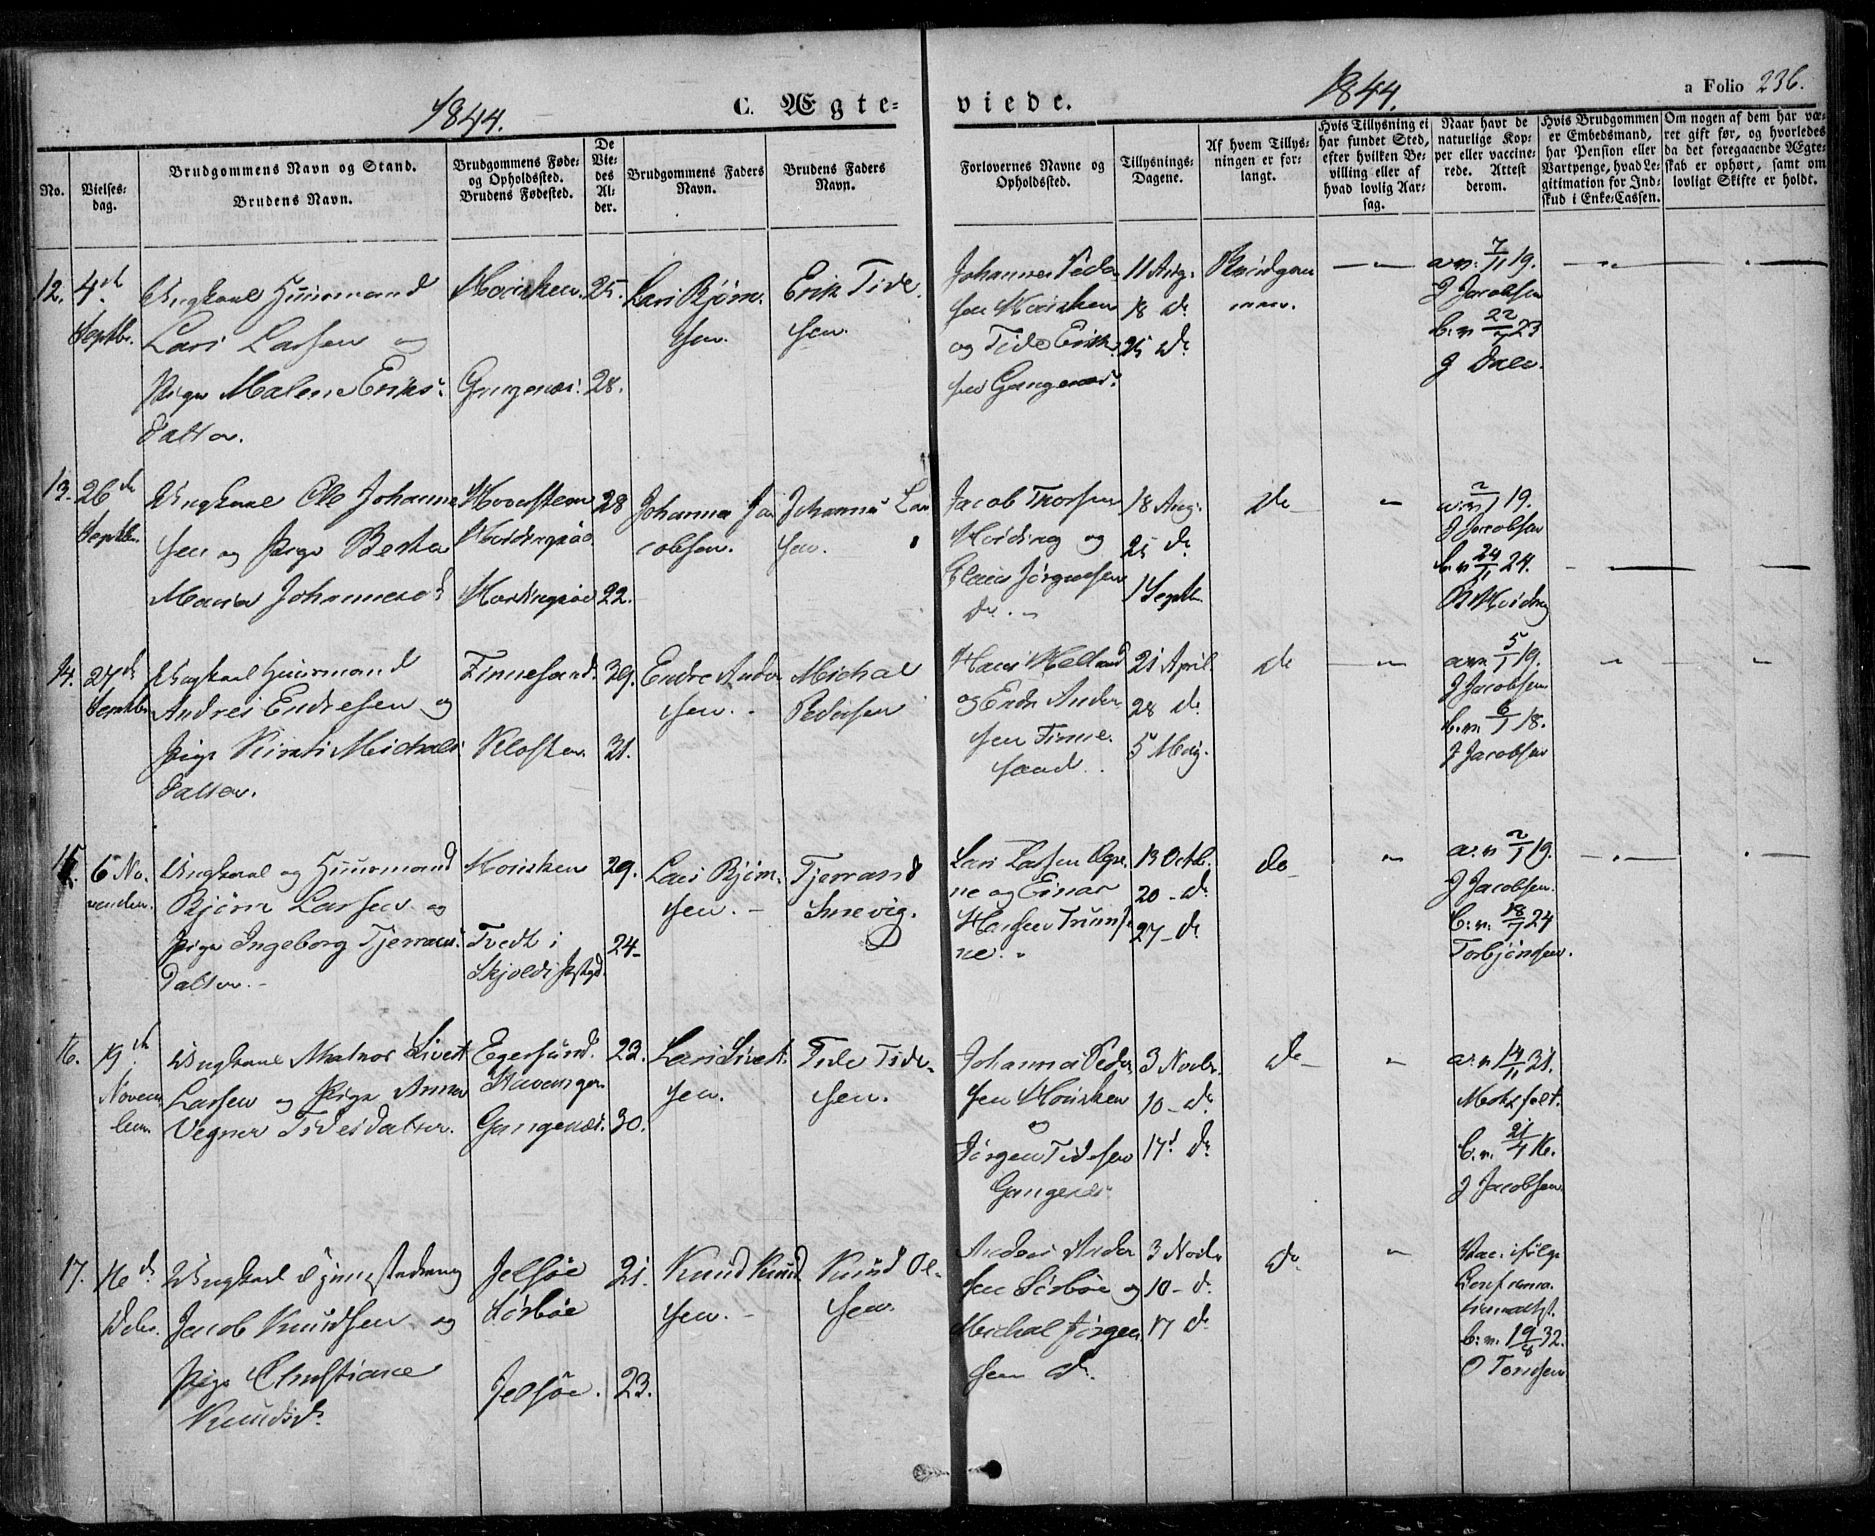 1844.
C. Ægte=
viede.
1844.
a Folio 236.
No.
Vielses-
dag.
Brudgommens Navn og Stand.
Brudens Navn.
Brudgommens Føde-
og Opholdssted.
Brudens Fødested.
De
Vie-
des
Al-
der.
Brudgommens Faders
Navn.
Brudens Faders
Navn.
Forlovernes Navne og
Opholdssted.
Tillysnings-
Dagene.
Af hvem Tillys-
ningen er for-
langt.
Hvis Tillysning ei
har fundet Sted,
efter hvilken Be-
villing eller af
hvad lovlig Aar-
sag.
Naar havt de
naturlige Kop-
per eller vaccine-
rede. Attest
derom.
Hvis Brudgommen
er Embedsmand,
har Pension eller
Vartpenge, hvad Le-
gitimation for Ind-
skud i Enke-Cassen.
Om nogen af dem har væ-
ret gift før, og hvorledes
da det foregaaende Ægte-
skab er ophørt, samt om
lovligt Skifte er holdt.
12.
4de
Septbr.
Ungkarl Huusmand
Lars Larsen og
Pige Malene Eriks-
datter.
25.
Gangenæs.
28.
Lars Bjørn-
sen.
Erik Tide-
sen.
Johannes Peder-
sen
og Tide Erik-
sen Gangenæs.
11 Aug.
18 do
25 do
Brudgom-
men.
a.v. 7/11 19.
J Jacobsen
b.v. 22/ 23
J
13.
26de
Septbr.
Ungkarl Ole Johanne-
sen og Pige Berte
Maria Johannesd.
28
22.
Johannes Ja-
cobsen.
Johannes Lar-
sen.
Jacob Thorsen
og
Claus Jørgensen
do
18 Aug.
25 do
1 Septbr
do
a.v. 2/1 19.
J Jacobsen
b.v. 24/11 24.
14.
27de
Septbr
Ungkarl Huusmand
Andreas Endresen og
Pige Michaels-
datter.
Finnesand.
Kloster.
29.
31.
Endre Ander-
sen.
Michal
Pedersen
Hans
og Endre Ander-
sen Finne-
sand.
21 April
28 do
5 Maj.
do
a.v. 5/1 19.
J Jacobsen
b.v. 6/1 18.
J Jacobsen
15.
6 No-
vember.
Ungkarl og Huusmand
Bjørn Larsen og
Pige Ingeborg Tjerrans-
datter.
Tvedt i
Skjolds Pstgd
29.
24
Lars Bjørn-
sen.
Tjerrand
Snevig.
Lars Larsen
og Einar
Hansen
13 Octb.
20 do
27 do
do
a.v. 2/1 19.
J Jacobsen.
b.v. 18/7 24
Torbjørnsen.
16.
19de
Novem-
ber.
Ungkarl Sivert
Larsen og Pige Anne
Vegner Tidesdatter.
Egersund.
Stavanger
Gangenæs.
23.
30.
Lars Sivert-
sen.
Tide Tide-
sen.
Johannes Peder-
sen
og
Jørgen Tidesen
Gangenæs
3 Novbr.
10 do
17 do
do
a.v. 14/11 21.
b.v. 21/4 16.
J Jacobsen
17.
16 d.
Debr.
Ungkarl
Jacob Knudsen og
Pige Christiane
Knudsd.
Jelsøe
Sørbøe
Jelsøe.
21.
23.
Knud Knud-
sen.
Knud Ol-
sen.
Anders Ander-
sen Sørbøe og
Michal Jørgen-
sen do.
3 Novbr
10 do
17 do
do
Vac. ifølge
b.v. 19/8 32.
O Tønnsen